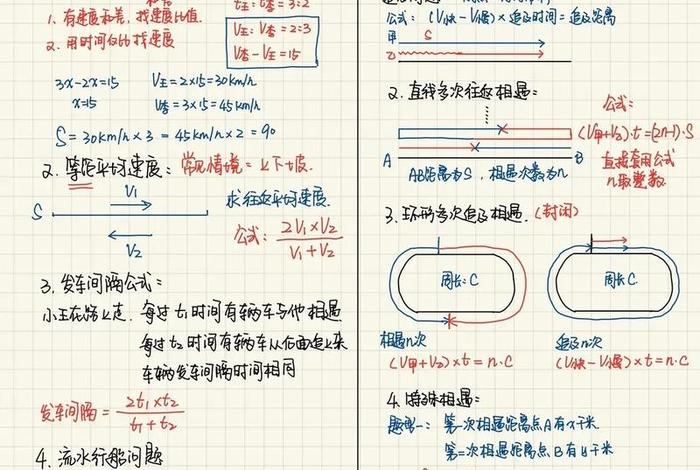 1. 有速度和差，找速度比值.
2. 用时间反比找速度
t王:t李=3:2
V王:V李=2:3
V李-V王=15
3x-2x=15
x=15
V王=2×15=30km/h
V李=3×15=45km/h
S=30km/h×3=45km/h×2=90
2. 等距平均速度：常见情境=上下坡.
V1
S
V2
求往返平均速度.
公式: 2V1×V2
V1+V2
3. 发车间隔公式:
小王在路上走. 每过t1时间有辆车与他相遇
每过t2时间有辆车从后面追上来
车辆发车间隔时间相同
发车间隔= 2t1×t2
t1+t2
4. 流水行船问题
公式: (V快-V慢)×追及时间=追及距离
甲 S
乙
2. 直线多次往返相遇:
公式:
(V甲+V乙)·t=(2n-1)·S
直接套用公式
n取整数.
A B
AB距离为S, 相遇次数为n
3. 环形多次追及相遇. (封闭)
周长:C
周长:C
相遇n次
(V甲+V乙)×t=n·C
追及n次
(V快-V慢)×t=n·C
4. 特殊相遇:
题型一: 第一次相遇距离点A有x千米
第二次相遇距离点B有y千米